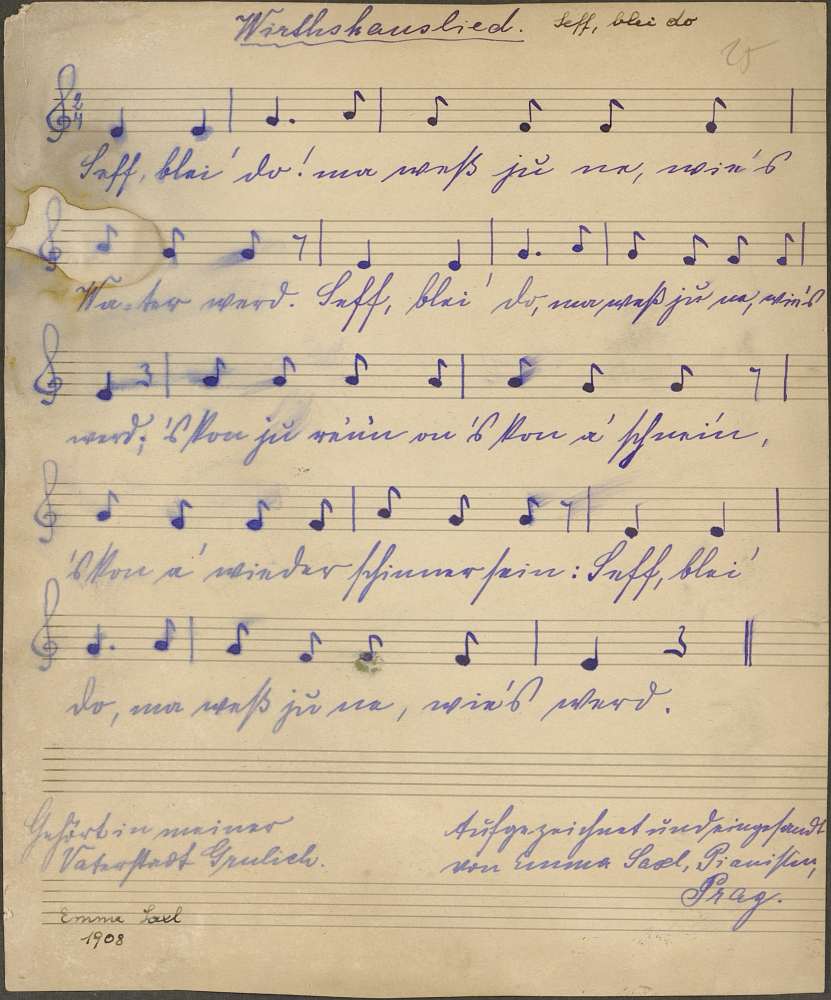 Wirthshauslied. Seff, blei do
25
2
4
Seff, blei' do! ma weß ju ne, wie's
Wa-ter werd. Seff, blei' do, ma weß ju ne, wie's
werd; 's kon ju rään on 's kon a' schnein,
's kon a' wieder schinner sein: Seff, blei'
do, ma weß ju ne, wie's werd.
Gehört in meiner
Vaterstadt Grulich.
Aufgezeichnet und eingesandt
von Emma Saxl, Pianistin,
Prag.
Emma Saxl
1908